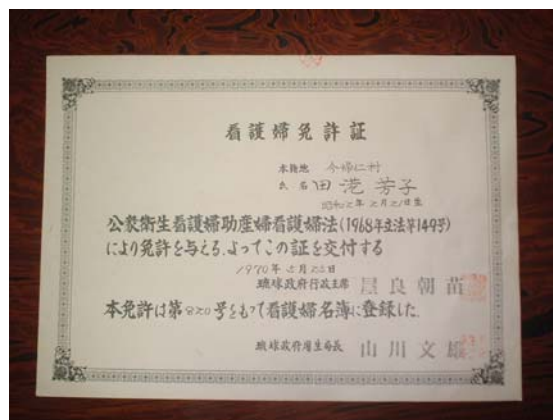 看護婦免許証
本籍地 今帰仁村
氏名 田港芳子
昭和2年2月21日生
公衆衛生看護婦助産婦看護婦法(1968年立法第149号)
により免許を与える、よってこの証を交付する
1970年5月25日
琉球政府行政主席 屋良朝苗
本免許は第820号をもって看護婦名簿に登録した.
琉球政府厚生局長 山川文雄